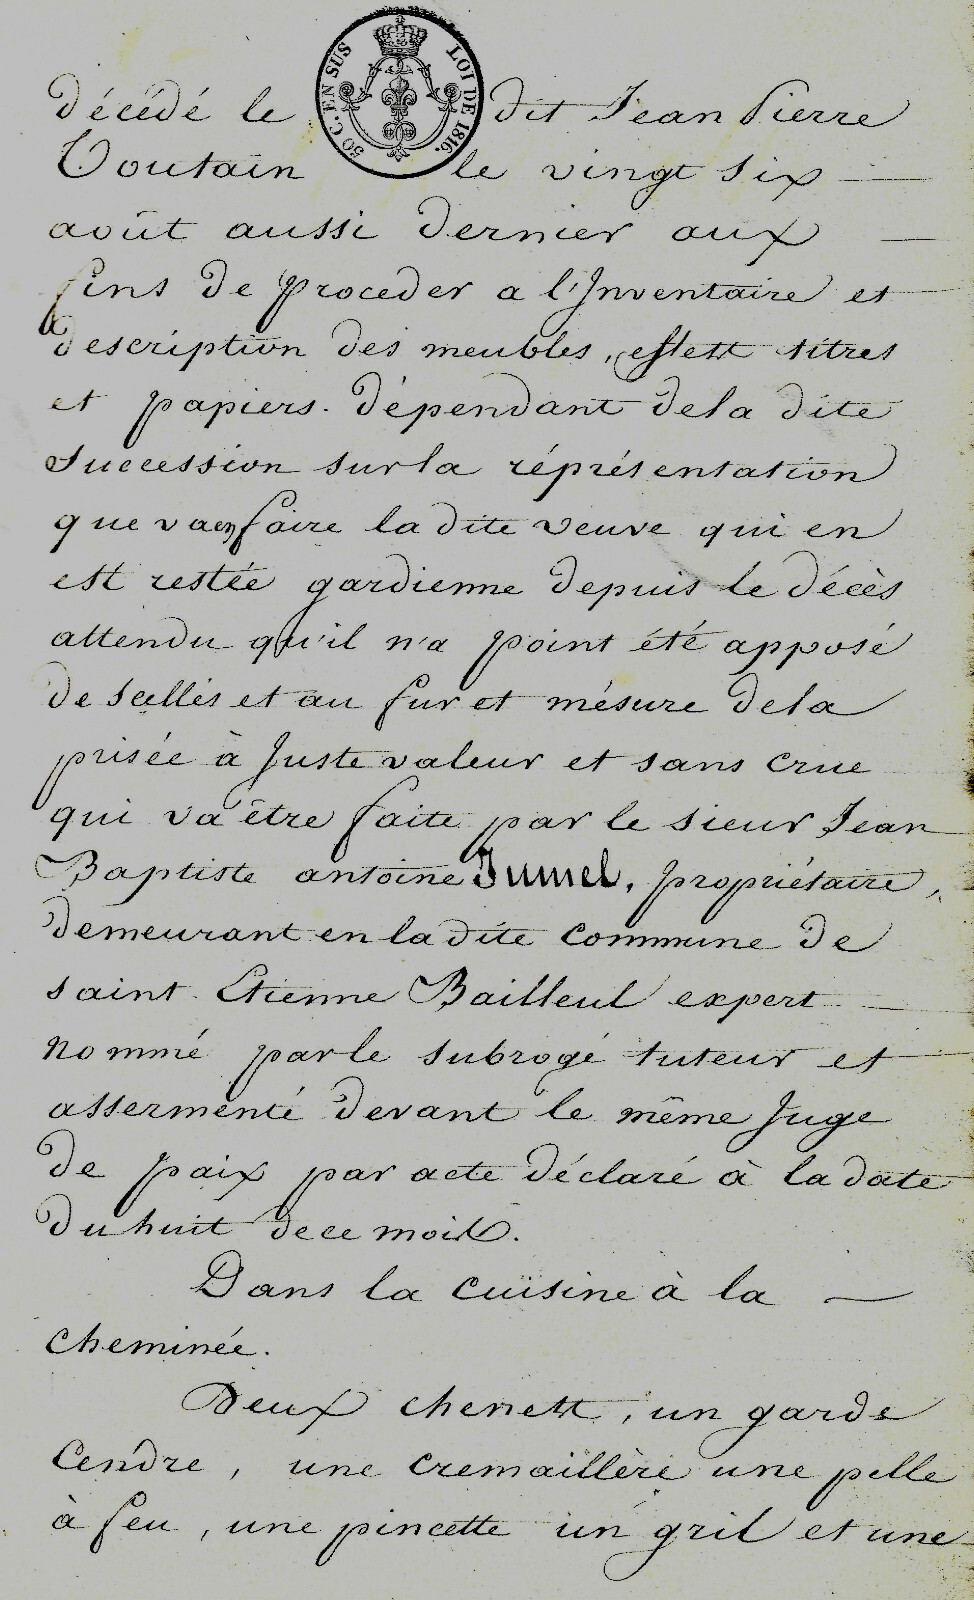 50 C. EN SUS LOI DE 1816.
décédé le dit Jean Pierre
Toutain le vingt six
août aussi dernier aux
fins de proceder a l'Inventaire et
description des meubles, effets titres
et papiers. dépendant dela dite
succession sur la réprésentation
que va en faire ladite veuve qui en
est restée gardienne depuis le décès
attendu qu'il n'a point été apposé
de scellés et au fur et mésure dela
prisée à Juste valeur et sans crue
qui va être faite par le sieur Jean
Baptiste antoine Jumel, propriétaire,
demeurant en ladite commune de
saint Etienne Bailleul expert
nommé par le subrogé tuteur et
assermenté devant le même Juge
de paix par acte déclaré à la date
du huit de ce mois.
Dans la cuisine à la
cheminée.
Deux chenets, un garde
Cendre, une cremaillère une pelle
à feu, une pincette un gril et une